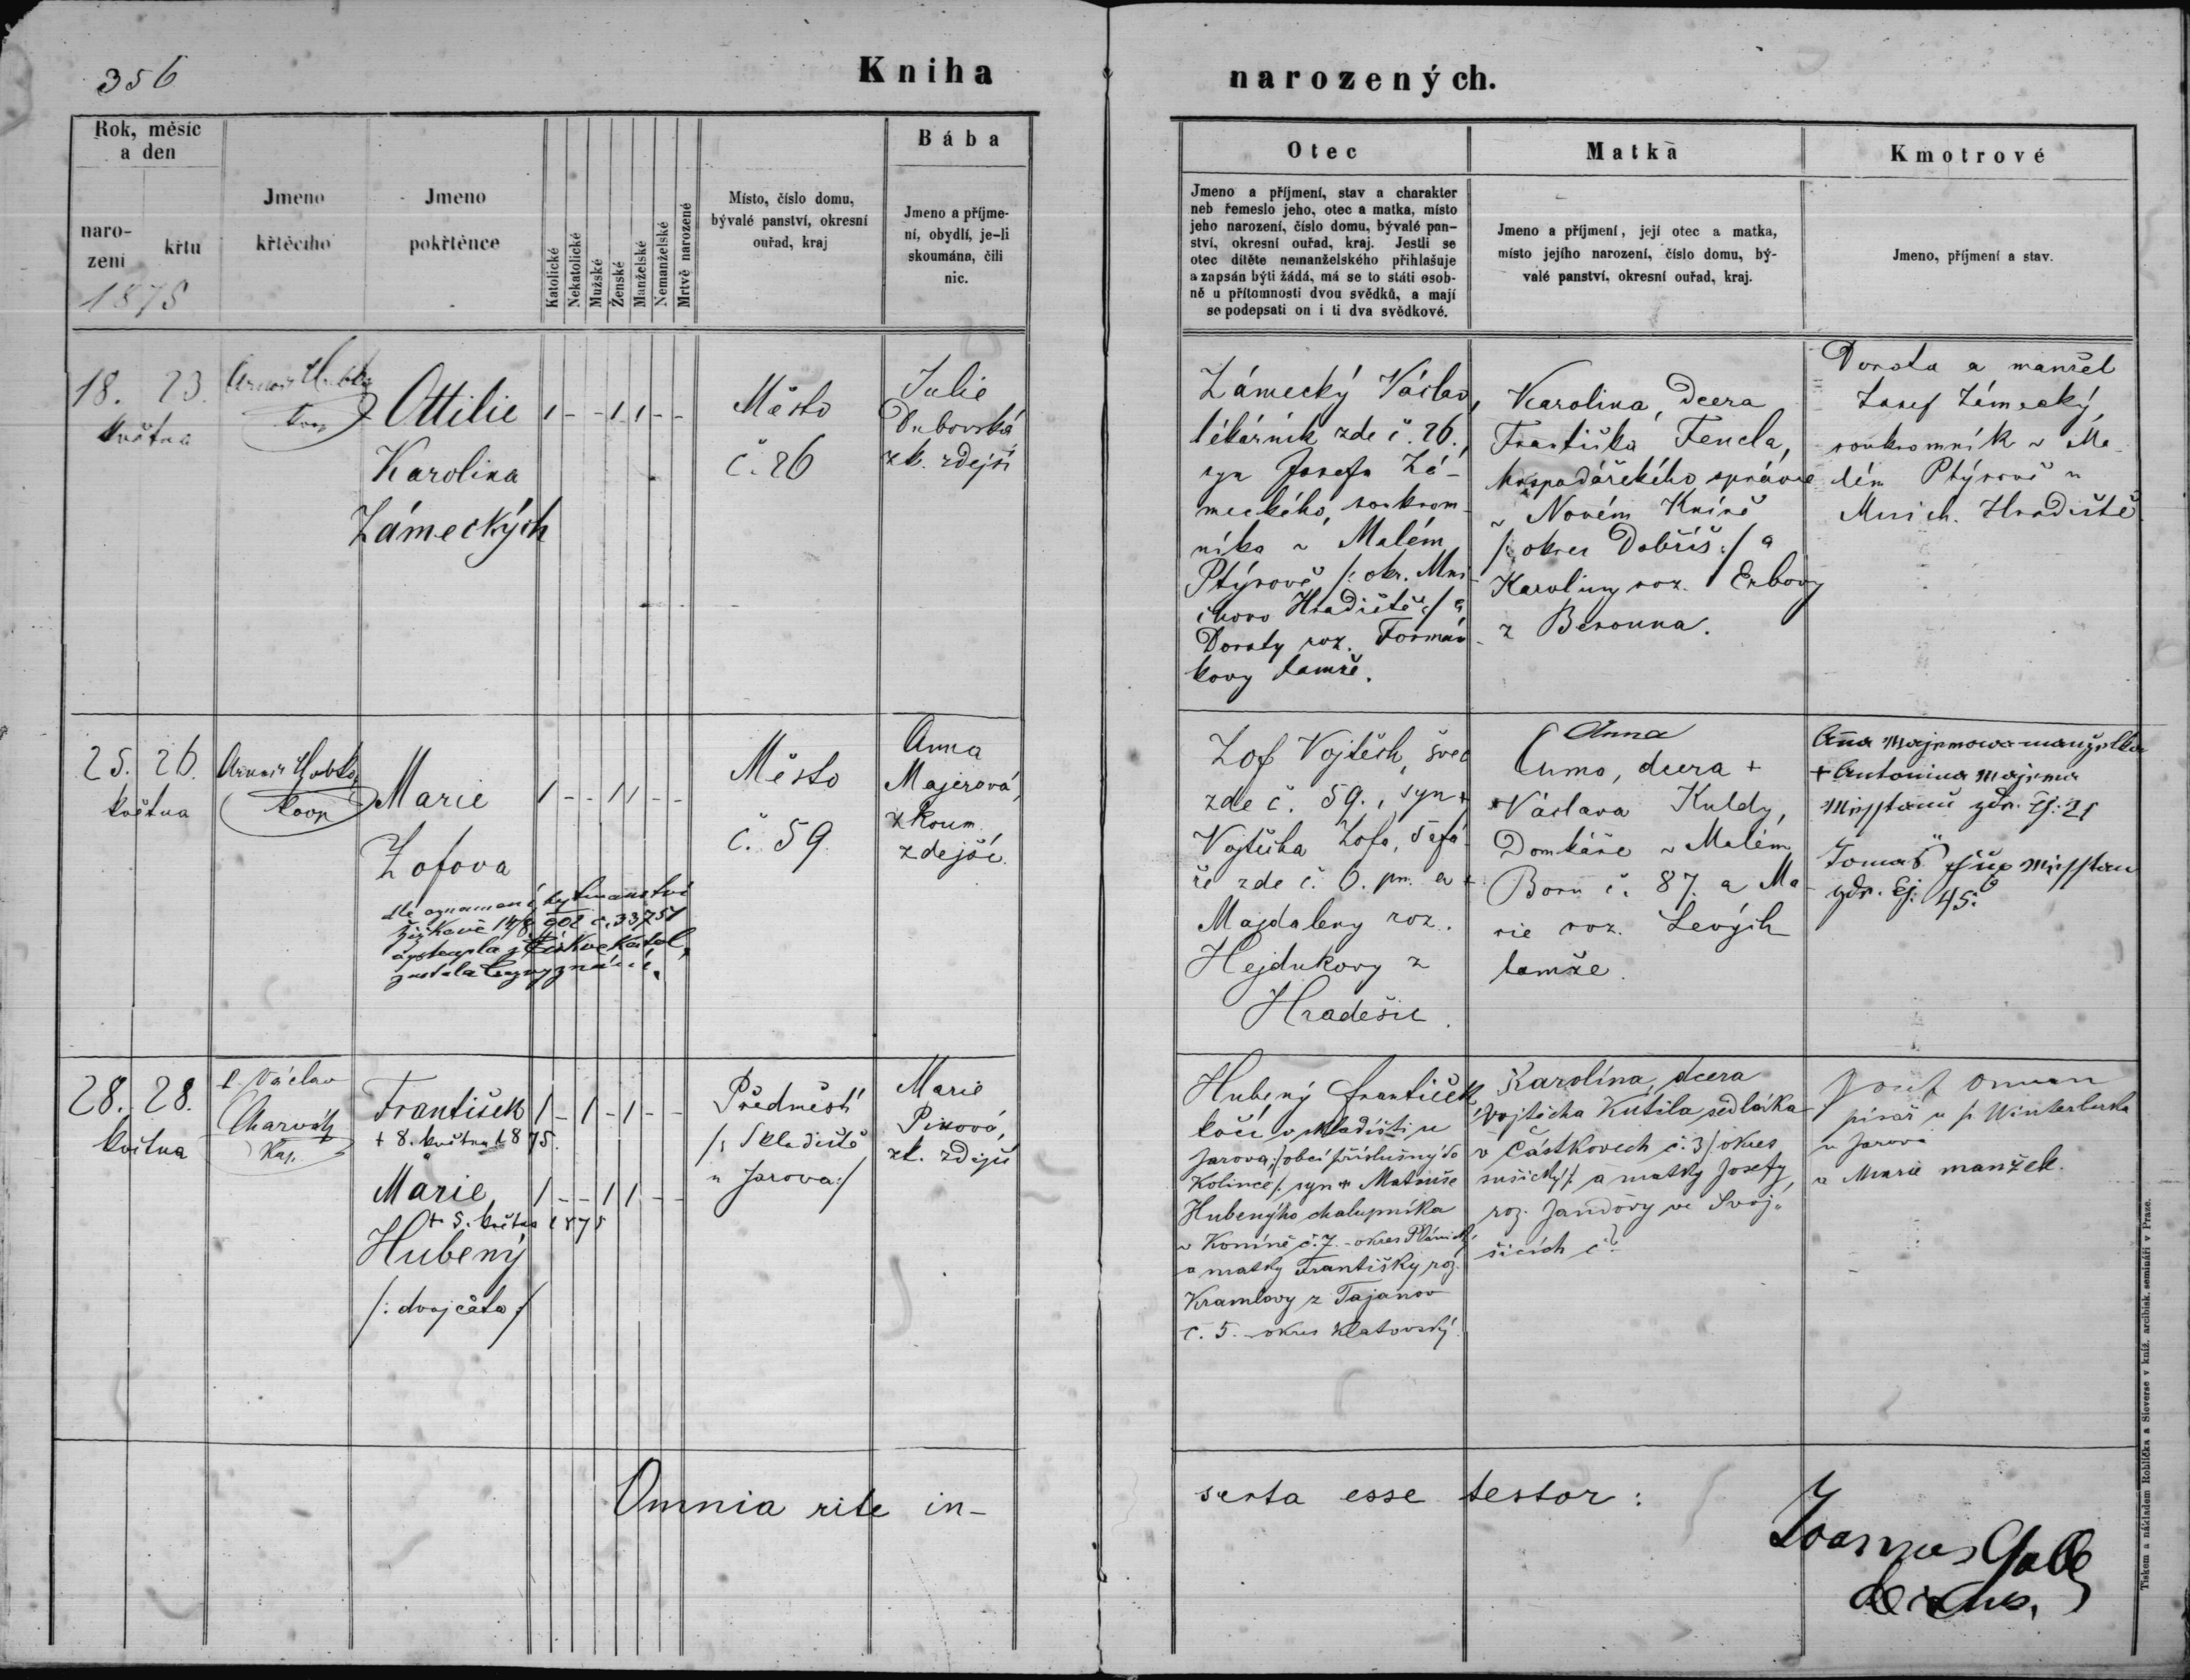 356
Kniha narozených.
Rok, měsíc a den
narození
křtu
1875
Jmeno křtěcího
Jmeno pokřtěnce
Katolické
Nekatolické
Mužské
Ženské
Manželské
Nemanželské
Mrtvě narozené
Místo, číslo domu,
bývalé panství, okresní
ouřad, kraj
Bába
Jmeno a příjme-
ní, obydlí, je-li
skoumána, čili
nic.
Otec
Jmeno a příjmení, stav a charakter
neb řemeslo jeho, otec a matka, místo
jeho narození, číslo domu, bývalé pan-
ství, okresní ouřad, kraj. Jestli se
otec dítěte nemanželského přihlašuje
a zapsán býti žádá, má se to státi osob-
ně u přítomnosti dvou svědků, a mají
se podepsati on i ti dva svědkové.
Matka
Jmeno a příjmení, její otec a matka,
místo jejího narození, číslo domu, bý-
valé panství, okresní ouřad, kraj.
Kmotrové
Jmeno, příjmení a stav.
18. 23.
května
Ottilie
Karolina
Zámeckých
1 - - 1 1 - -
Město
č. 26
Julie
Dubovská
zk. zdejší
Zámecký Václav,
lékárník zde č. 26.,
syn Josefa Zá-
meckého, soukrom-
níka v Malém
Ptýrově /: okr. Mni-
chovo Hradiště :/ a
Doroty roz. Formán-
kovy tamže.
Karolina, dcera
Františka Fencla,
hospodářského správce
v Novém Kníně
/: okres Dobříš :/ a
Karoliny roz. Erbovy
z Berouna.
Dorota a manžel
Josef Zámecký,
soukromník v Ma-
lém Ptýrově u
Mnich. Hradiště
25. 26.
května
koop
Marie
Zofova
dle oznamení hejtmanství
Žižkově 14/8 902 č. 33751
vystoupla z církve katol.,
zustala bez vyznání.
1 - - 1 1 - -
Město
č. 59
Anna
Majerová,
zkoum.
zdejší.
Zof Vojtěch, švec
zde č. 59., syn +
Vojtěcha Zofa, šafá-
ře zde č. 6. pm. a +
Majdaleny roz.
Hejdukovy z
Hradešic.
Anna
dcera +
Václava Kuldy,
Domkáře v Malém
Boru č. 87. a Ma-
rie roz. Levých
tamže.
manželka
+ Antonina Majera
zdr. čj. 21
Tomáš
zdr. čj: 45.
28. 28.
května
P. Václav
Charvát
Kap.
František
+ 8. května 1875.
Marie
+ 5. května 1875
Hubený
/: dvojčata :/
1 - 1 - 1 - -
1 - - 1 1 - -
Předměstí
/: Skladiště
u Jarova :/
Marie
Pixová,
zk. zdejší
Hubený František
kočí v skladišti u
Jarova, /: obcí příslušný do
Kolince /: syn + Matouše
Hubenýho chalupníka
v Koníně č. 7. - okres Plánický
a matky Františky roz.
Kramlovy z Tajanov
č. 5. - okres Klatovský.
Karolína, dcera
Vojtěcha Kutila sedláka
v Částkovech č. 3 /: okres
sušický :/ a matky Josefy,
roz. Jandovy ve Svoj-
šicích č?
Josef
písař u p. Winterberka
u Jarova
a Marie manžel.
Omnia rite in-
serta esse testor:
Joannes
Tiskem a nákladem Rohlíčka a Sieverse v kníž. arcibisk. semináři v Praze.